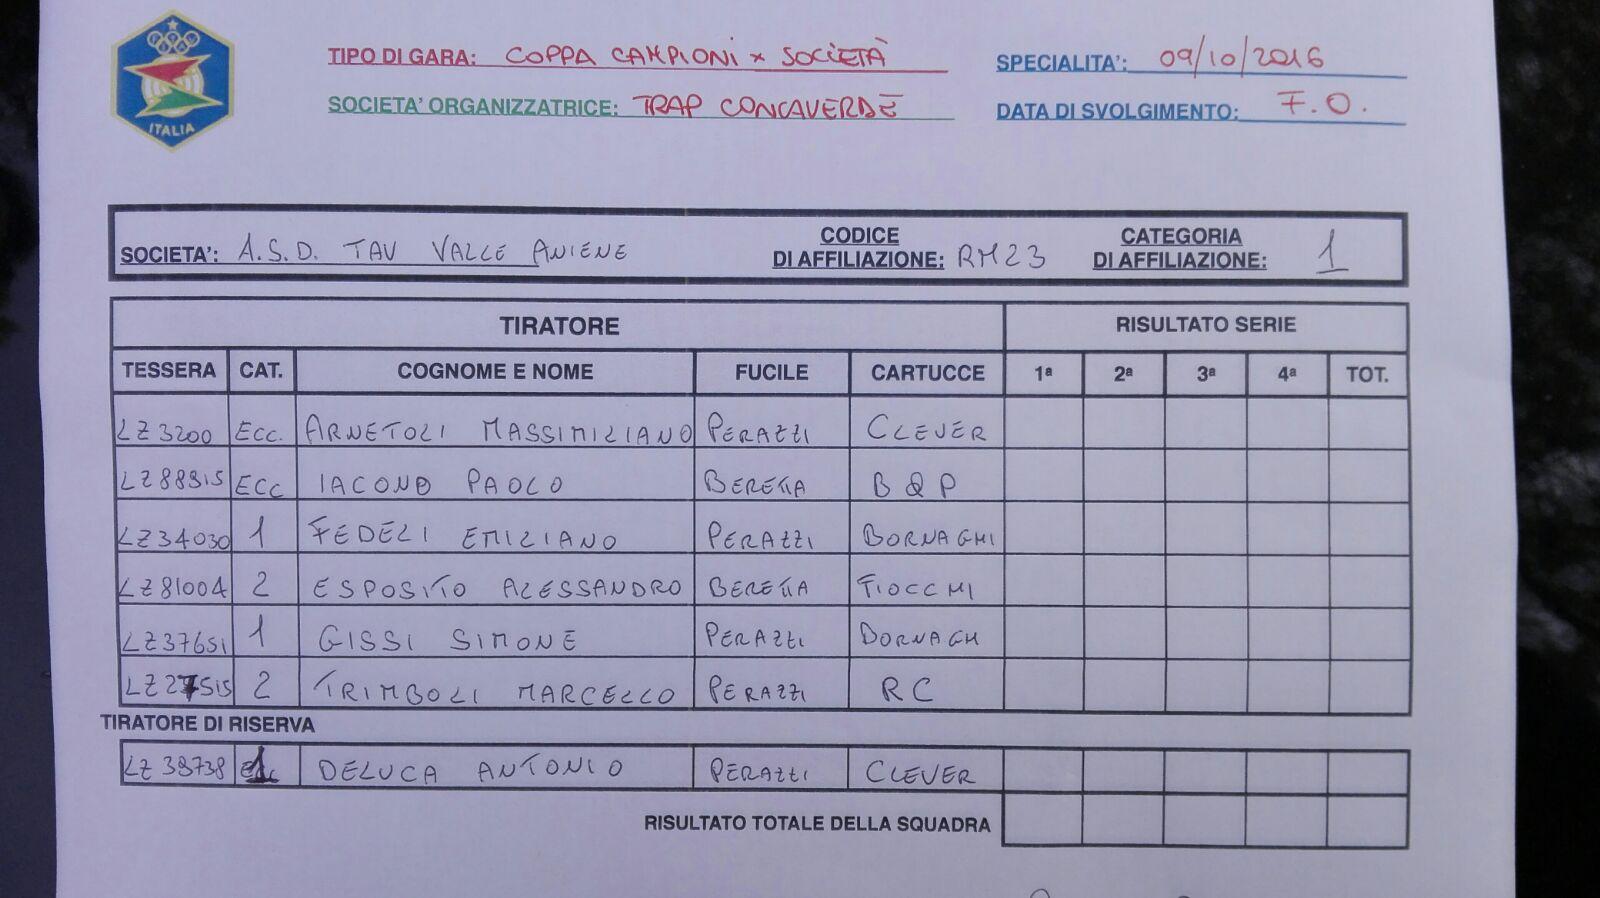 ITALIA
TIPO DI GARA: COPPA CAMPIONI x SOCIETÀ
SPECIALITA': 09/10/2016
SOCIETA' ORGANIZZATRICE: TRAP CONCAVERDE
DATA DI SVOLGIMENTO: F.O.
SOCIETA': A.S.D. TAV VALLE ANIENE CODICE DI AFFILIAZIONE: RM23 CATEGORIA DI AFFILIAZIONE: 1
TIRATORE RISULTATO SERIE
TESSERA CAT. COGNOME E NOME FUCILE CARTUCCE 1ª 2ª 3ª 4ª TOT.
LZ3200 Ecc. ARNETOLI MASSIMILIANO PERAZZI CLEVER
ECC IACONO PAOLO BERETTA B & P
LZ34030 1 FEDELI EMILIANO PERAZZI BORNAGHI
LZ81004 2 ESPOSITO ALESSANDRO BERETTA FIOCCHI
LZ37651 1 GISSI SIMONE PERAZZI BORNAGH
LZ27515 2 TRIMBOLI MARCELLO PERAZZI RC
TIRATORE DI RISERVA
1 DELUCA ANTONIO PERAZZI CLEVER
RISULTATO TOTALE DELLA SQUADRA